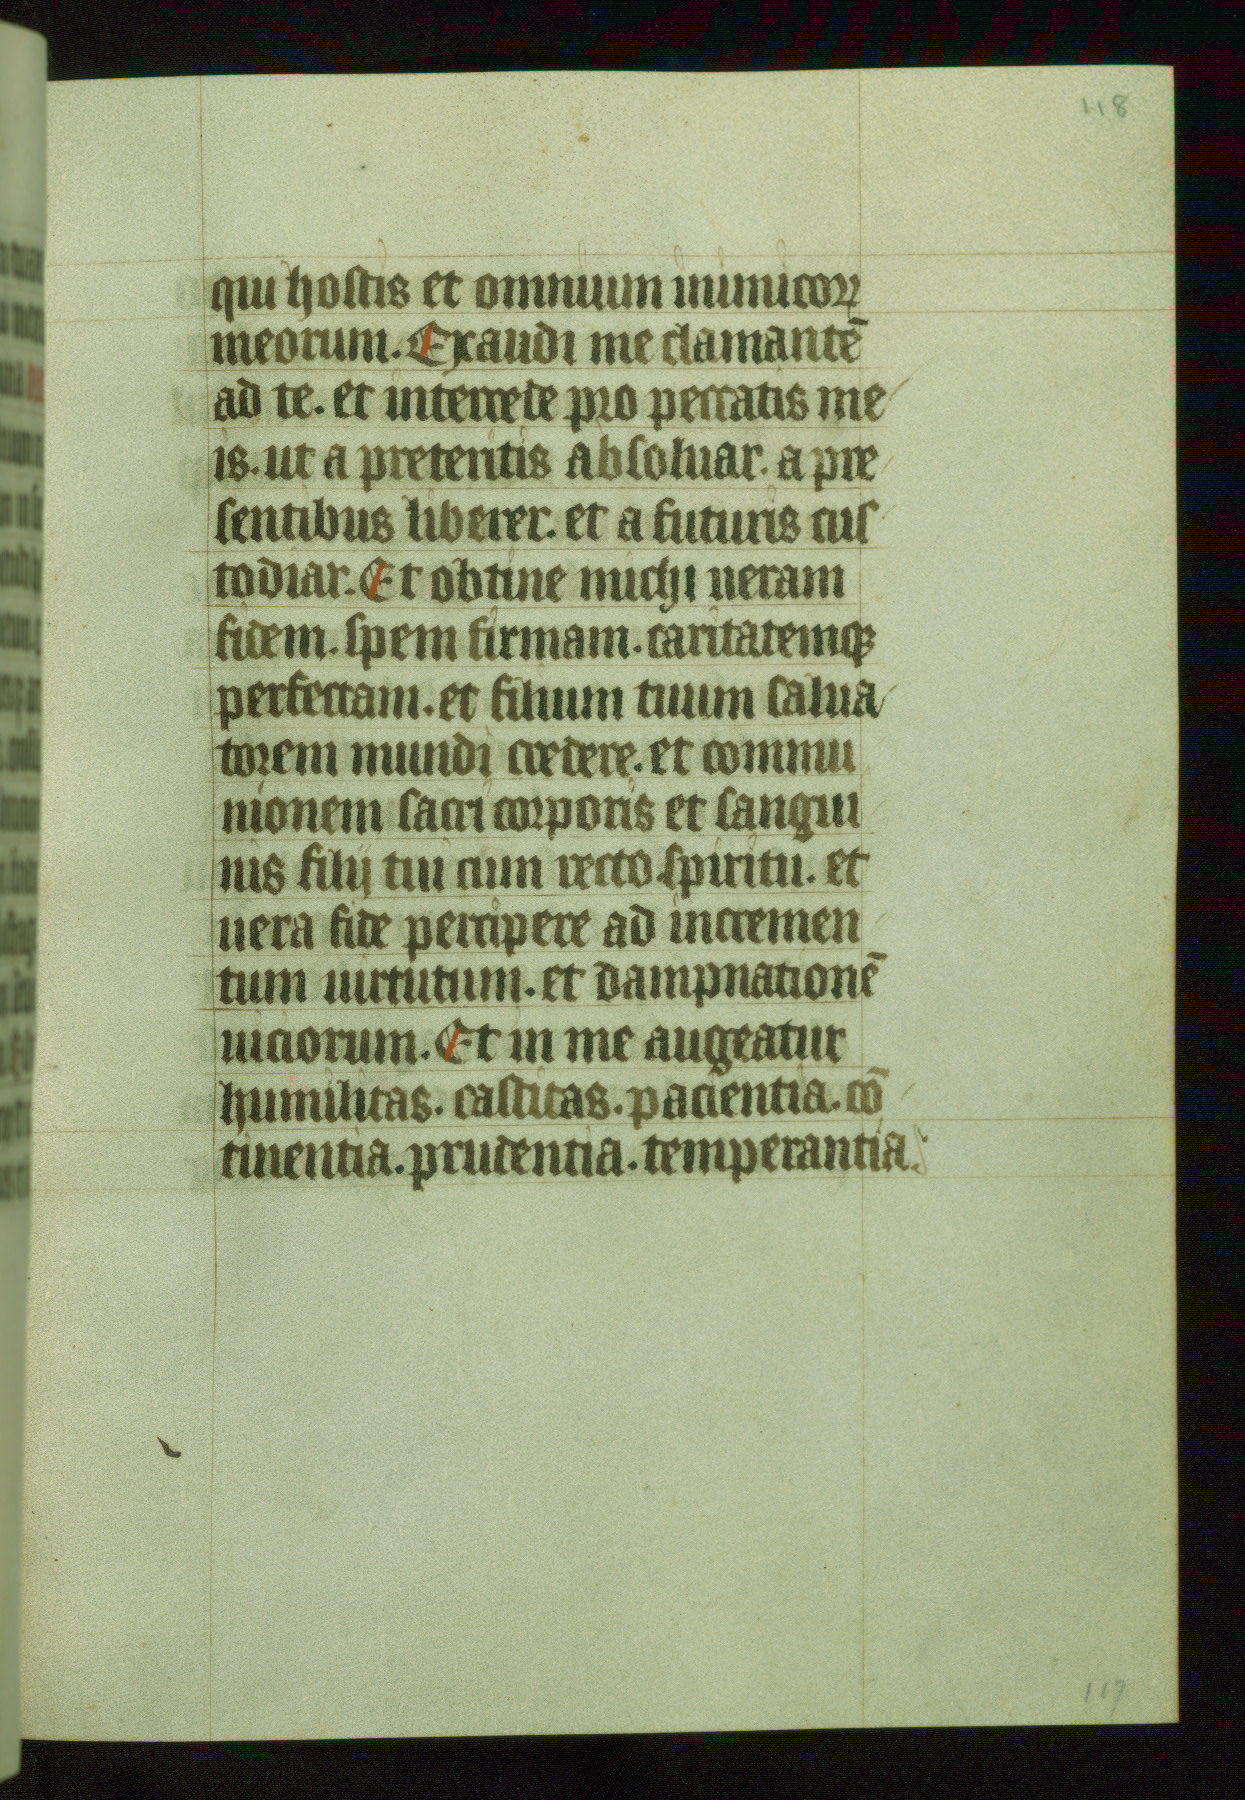 118
qui hostis et omnium inimicoꝝ
meorum. Exaudi me clamantē
ad te. et intercede pro peccatis me
is. ut a preteritis absoluar. a pre
sentibus liberer. et a futuris cus
todiar. Et obtine michi ueram
fidem. spem firmam. caritatemqꝫ
perfectam. et filium tuum salua
torem mundi credere. et commu
nionem sacri corporis et sangui
nis filij tui cum recto spiritu. et
uera fide percipere ad incremen
tum uirtutum. et dampnationē
uiciorum. Et in me augeatur
humilitas. castitas. pacientia. cō
tinentia. prudentia. temperantia.
117